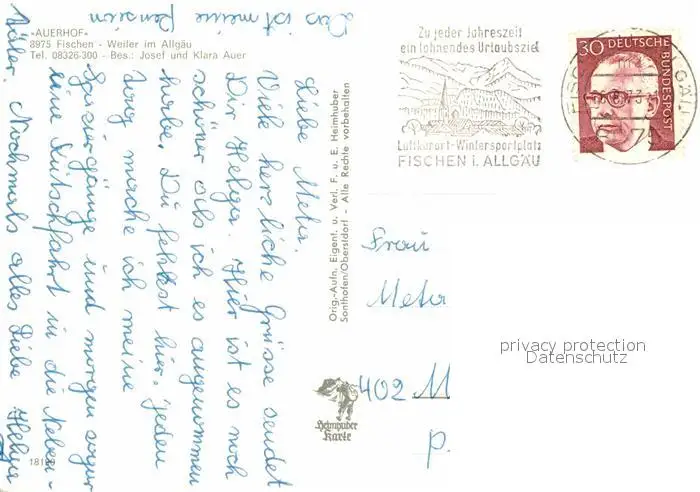 Das ist meine Pension
»AUERHOF«
8975 Fischen - Weiler im Allgäu
Tel. 08326-300 - Bes.: Josef und Klara Auer
Liebe Meta.
Viele herzliche Grüsse sendet
Dir Helga. Hier ist es noch
schöner als ich es angenommen
habe. Du fehlst hier. jeden
Tag mache ich meine
Spaziergänge und morgen sogar
eine Kutschfahrt in die Neben-
täler. Nochmals alles Liebe Helga
18120
Orig.-Aufn. Eigent. u. Verl. F. u. E. Heimhuber
Sonthofen/Oberstdorf - Alle Rechte vorbehalten
Heimhuber
Karte
Zu jeder Jahreszeit
ein lohnendes Urlaubsziel
Luftkurort-Wintersportplatz
FISCHEN i. ALLGÄU
30 DEUTSCHE
BUNDESPOST
Frau
Meta
402 M
p.
privacy protection
Datenschutz